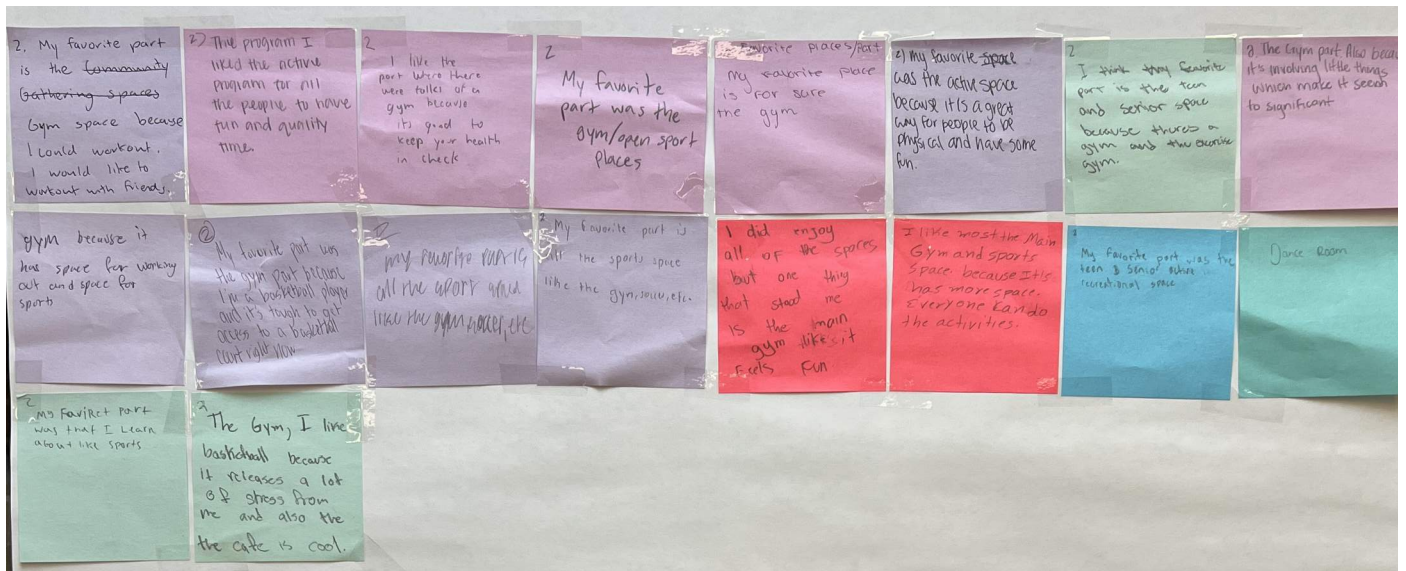 2. My favorite part
is the Community
Gathering spaces
Gym space because
I could workout.
I would like to
workout with friends.
2) The program I
liked the active
program for all
the people to have
fun and quality
time.
2
I like the
part were there
were talks of a
gym because
it's good to
keep your health
in check
2
My favorite
part was the
gym/open sport
Places
Favorite places/Part
my favorite place
is for sure
the gym
2) my favorite space
was the active space
because it is a great
way for people to be
physical and have some
fun.
2
I think my favorite
part is the teen
and senior space
because theres a
gym and the exercise
gym.
2. The Gym part. Also because
it's involving little things
which make it seem
to significant
gym because it
has space for working
out and space for
sports
2
My favorite part was
the gym part because
I'm a basketball player
and it's tough to get
access to a basketball
court right now
2
my favorite part is
all the sport area
like the gym, soccer, etc
2
My favorite part is
all the sports space
like the gym, soccer, etc.
I did enjoy
all of the spaces
but one thing
that stood me
is the main
gym like it
Feels Fun
I like most the Main
Gym and sports
Space because It is
has more space.
Everyone Kan do
the activities.
My favorite part was the
teen & Senior active
recreational space
Dance Room
2
My FaviRet Part
was that I Learn
about like Sports
2
The Gym, I like
basketball because
it releases a lot
of stress from
me and also the
the cafe is cool.